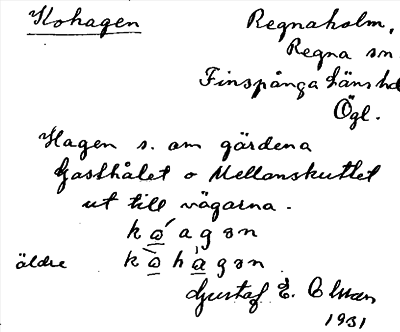 Kohagen
Regnaholm,
Regna sn.
Finspånga länshd
Ögl.
Hagen s. om gärdena
Gasthålet o Mellanskuttet
ut till vägarna.
ko̲´agən
äldre kò̲hàgən
Gustaf E. Olsson
1931